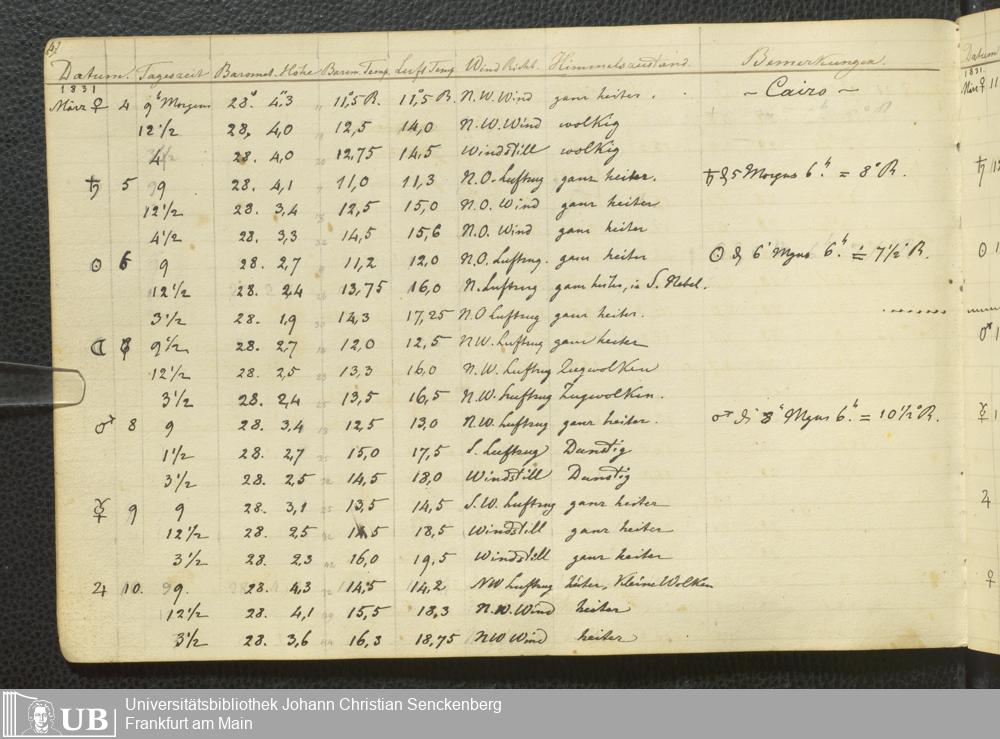 Datum. Tageszeit Baromet. Höhe Barom. Temp. Luft Temp. Wind Richt. Himmelszustand. Bemerkungen.
1831 — Cairo —
März ♀ 4 9h Morgens 28" 4,"3 11,°5 R. 11,°5 R. N.W. Wind ganz heiter.
12 1/2 28. 4,0 12,5 14,0 N.W. Wind wolkig
4 28. 4,0 12,75 14,5 Windstill wolkig
♄ 5 9 28. 4,1 11,0 11,3 N.O. Luftzug ganz heiter. ♄ d. 5 Morgens 6h = 8° R.
12 1/2 28. 3,4 12,5 15,0 N.O. Wind ganz heiter
4 1/2 28. 3,3 14,5 15,6 N.O. Wind ganz heiter
☉ 6 9 28. 2,7 11,2 12,0 N.O. Luftzug. ganz heiter ☉ d. 6 Mgns. 6h. = 7 1/2° R.
12 1/2 28. 2,4 13,75 16,0 N. Luftzug ganz heiter, in S. Nebel.
3 1/2 28. 1,9 14,3 17,25 N.O Luftzug ganz heiter.
☾ 7 9 1/2 28. 2,7 12,0 12,5 N.W. Luftzug ganz heiter
12 1/2 28. 2,5 13,3 16,0 N.W. Luftzug Zugwolken
3 1/2 28. 2,4 13,5 16,5 N.W. Luftzug Zugwolken.
♂ 8 9 28. 3,4 12,5 13,0 N.W. Luftzug ganz heiter. ♂ d. 8 Mgns 6h. = 10 1/2° R.
1 1/2 28. 2,7 15,0 17,5 S. Luftzug Dunstig
3 1/2 28. 2,5 14,5 18,0 Windstill Dunstig
☿ 9 9 28. 3,1 13,5 14,5 S.W. Luftzug ganz heiter
12 1/2 28. 2,5 5 18,5 Windstill ganz heiter
3 1/2 28. 2,3 16,0 19,5 Windstill ganz heiter
♃ 10. 9. 28. 4,3 14,5 14,2 NW Luftzug heiter, Kleine Wolken
12 1/2 28. 4,1 15,5 18,3 N.W. Wind heiter
3 1/2 28. 3,6 16,3 18,75 NW Wind heiter
Datum
1831.
März ♀ 11
♄ 12
☉ 1
♂ 1
☿ 1
♃
♀
UB
Universitätsbibliothek Johann Christian Senckenberg
Frankfurt am Main